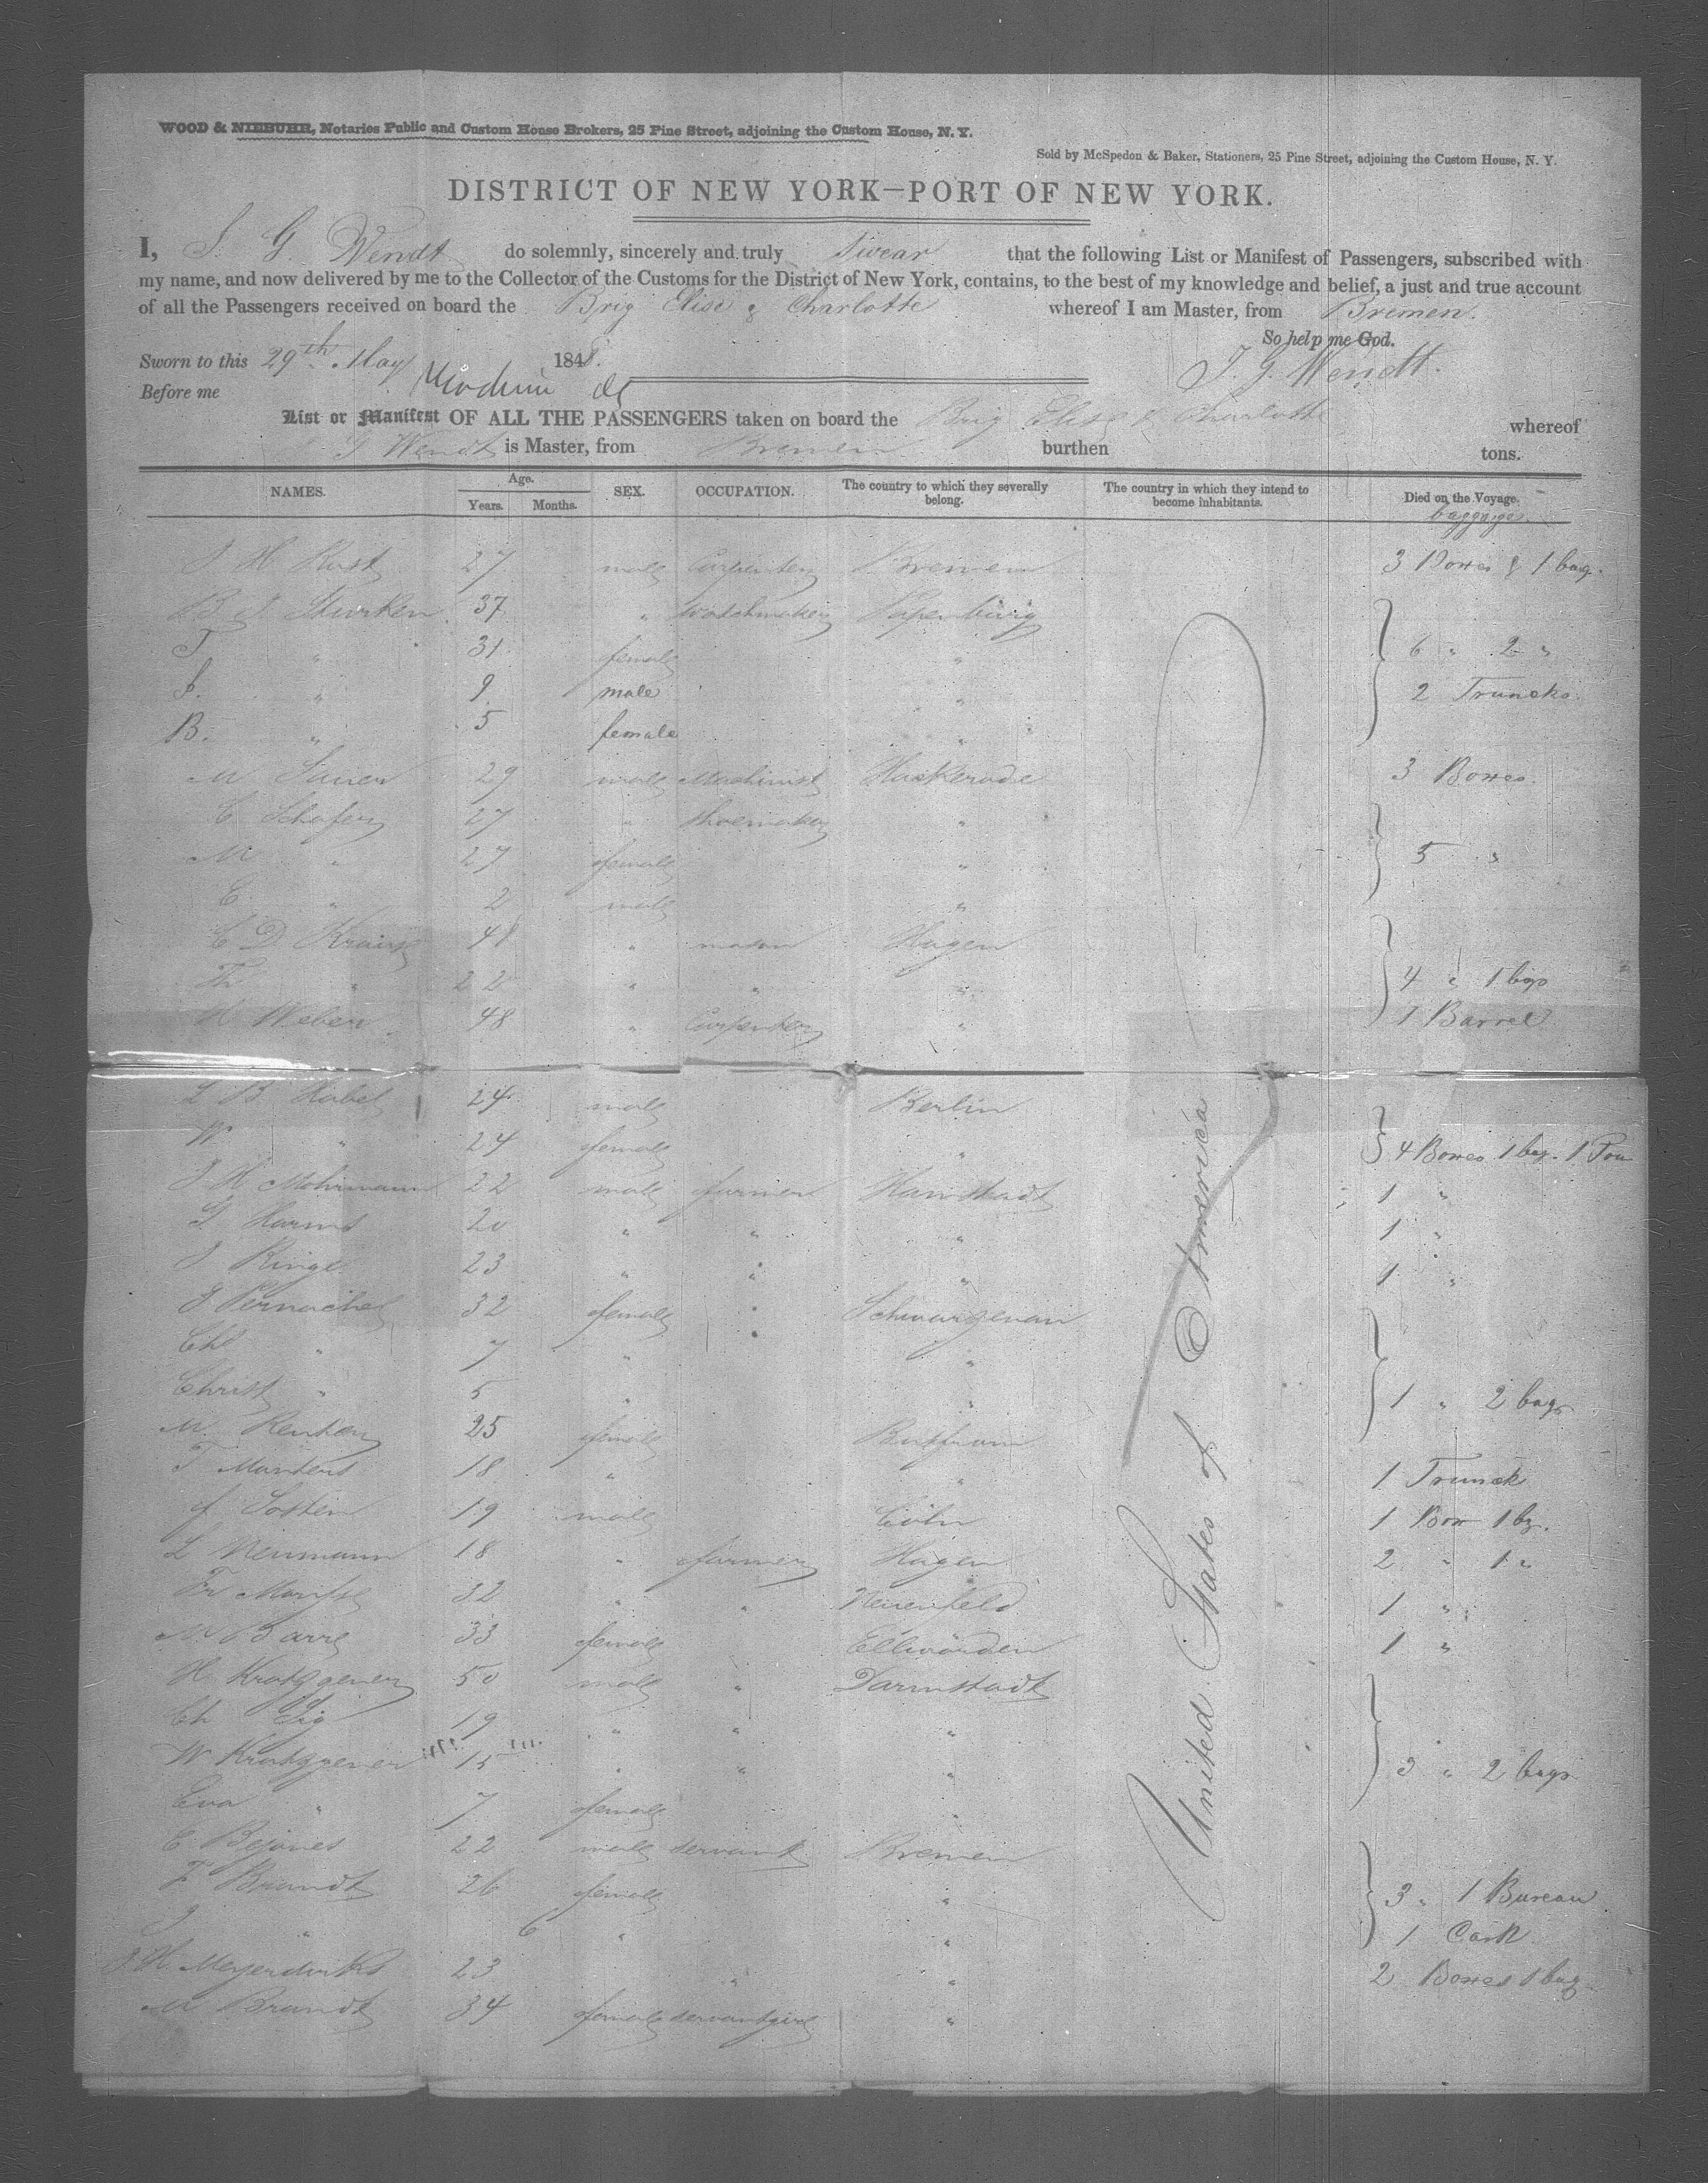 WOOD & NIEBUHR, Notaries Public and Custom House Brokers, 25 Pine Street, adjoining the Custom House, N. Y.
Sold by McSpedon & Baker, Stationers, 25 Pine Street, adjoining the Custom House, N. Y.
DISTRICT OF NEW YORK—PORT OF NEW YORK.
I, J. G. Wendt do solemnly, sincerely and truly swear that the following List or Manifest of Passengers, subscribed with
my name, and now delivered by me to the Collector of the Customs for the District of New York, contains, to the best of my knowledge and belief, a just and true account
of all the Passengers received on board the Brig Elise & Charlotte whereof I am Master, from Bremen.
So help me God.
Sworn to this 29th May 1848. J. G. Wendt.
Before me
List or Manifest OF ALL THE PASSENGERS taken on board the Brig Elise & Charlotte whereof
J Wendt is Master, from Bremen burthen tons.
NAMES. Age. Years. Months. SEX. OCCUPATION. The country to which they severally belong. The country in which they intend to become inhabitants. Died on the Voyage.
baggage.
J H Rust 27 male Carpenter Bremen 3 Boxes & 1 bag.
B Sturken 37 " watchmaker Papenburg
T " 31 female " 6 " 2 "
J. " 9 male " 2 Truncks.
B. " 5 female "
M Sauer 29 male Machinist Hackerode 3 Boxes.
C Schafer 27 " shoemaker "
M " 27 female " 5 "
E " 2 male "
C D 48 " mason Hagen
Th " 22 " " " 4 " 1 bag
H Weber 48 " Carpenter " 1 Barrel
L B Habel 24 male Berlin
W " 24 female " 4 Boxes 1 bag. 1
J H Mohrmann 22 male farmer 1 "
G Harms 20 " " " 1 "
J Ringe 23 " " " 1 "
32 female "
Ch " 7 " "
Christ " 5 " " 1 " 2 bags
M. Renken 25 female
T Martens 18 " " 1 Trunck
J 19 male Cöln 1 Box 1 bg.
L Neumann 18 " farmer Hagen 2 " 1 "
Fr 32 " " Neuenfeld 1 "
M Barre 33 female Ellwürden 1 "
H 50 male " Darmstadt
Ch 19 " " "
W 15 " " " 3 " 2 bags
Eva " 7 female "
C 22 male servant Bremen
F Brandt 26 female " 3 " 1 Bureau
J " 6 " " 1 Cask
J. H. Meyerdirks 23 " " 2 Boxes 1 bag
M Brandt 34 female servantgirl "
United States of America